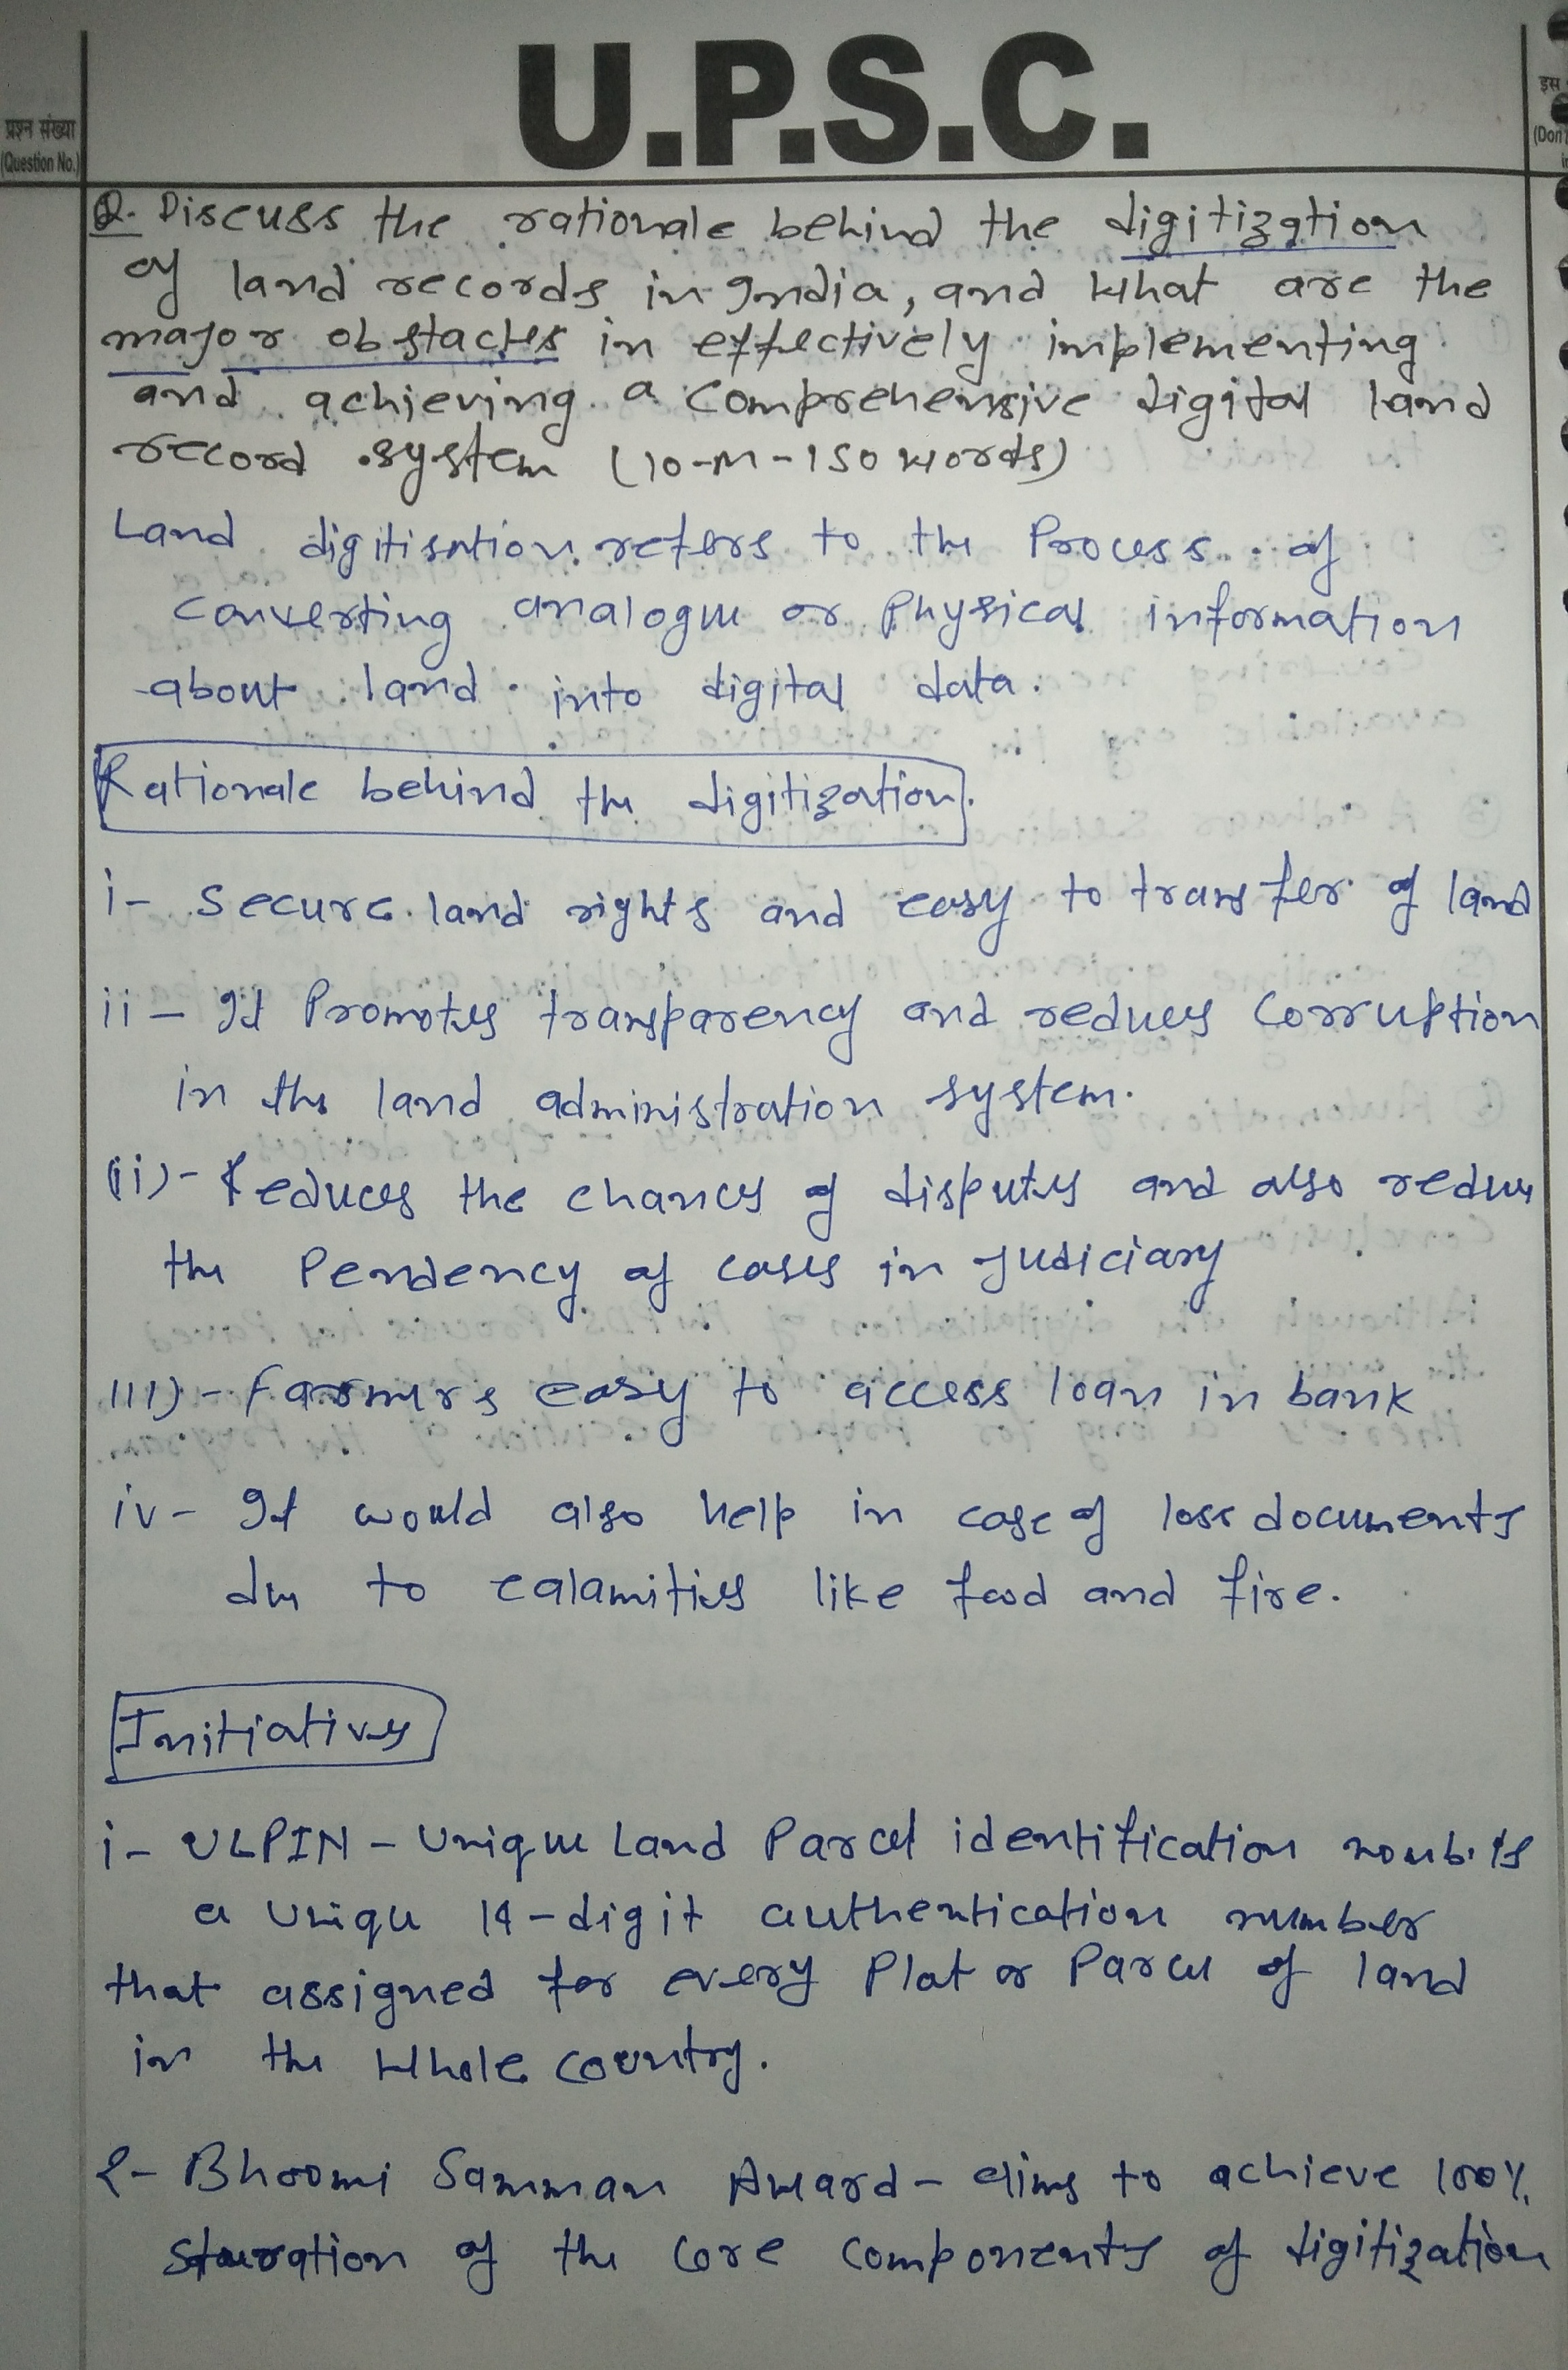 U.P.S.C.
प्रश्न संख्या
(Question No.)
इस
(Don'
in
Q. Discuss the rationale behind the digitization
of land records in India, and what are the
major obstacles in effectively implementing
and achieving a comprehensive digital land
record system (10-M-150 words)
Land digitisation refers to the Process of
converting analogue or physical information
about land into digital data.
Rationale behind the digitization.
i- Secure land rights and easy to transfer of land
ii- It Promotes transparency and reduces Corruption
in the land administration system.
(ii)- Reduces the chances of disputes and also reduce
the Pendency of cases in Judiciary
iii)- Farmers easy to access loan in bank
iv- It would also help in case of loss documents
due to calamities like food and fire.
Initiatives
i- ULPIN - Unique Land Parcel identification is
a Uniqu 14-digit authentication number
that assigned for every Plot or Parcel of land
in the whole country.
2- Bhoomi Samman Award- aims to achieve 100%
of the Core Components of digitization